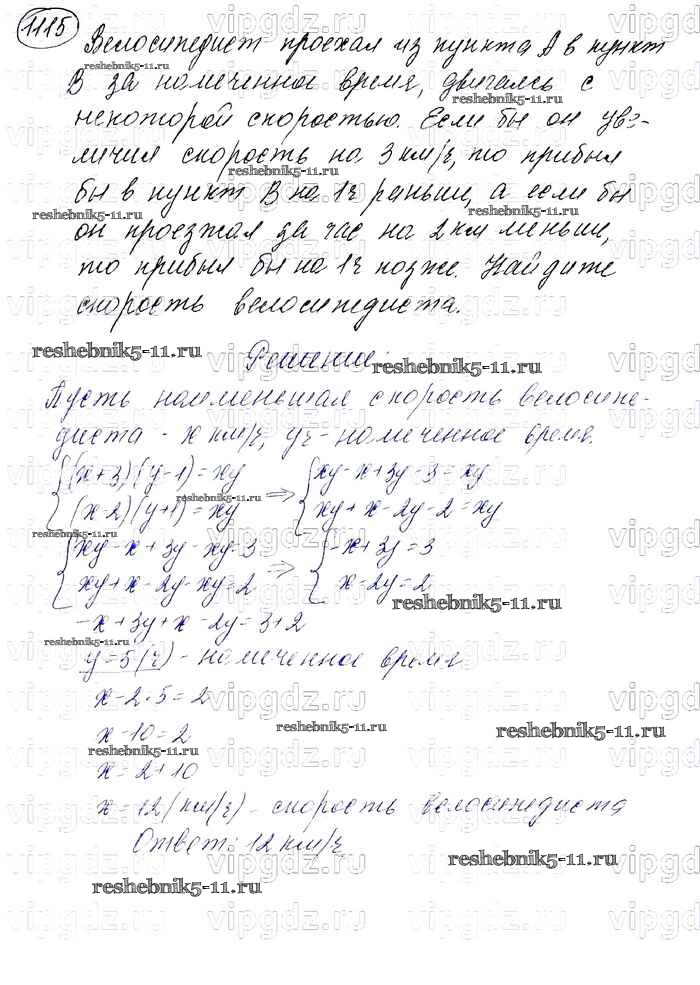 1115
Велосипедист проехал из пункта А в пункт
В за намеченное время, двигаясь с
некоторой скоростью. Если бы он уве-
личил скорость на 3 км/ч, то прибыл
бы в пункт В на 1ч раньше, а если бы
он проезжал за час на 2 км меньше,
то прибыл бы на 1ч позже. Найдите
скорость велосипедиста.
Решение:
Пусть наименьшая скорость велосипе-
диста - х км/ч, уч - намеченное время.
{(х+3)(у-1)=ху => {ху-х+3у-3=ху
{(х-2)(у+1)=ху => {ху+х-2у-2=ху
{ху-х+3у-ху=3 => {-х+3у=3
{ху+х-2у-ху=2 => {х-2у=2
-х+3у+х-2у=3+2
у=5(ч) - намеченное время
х-2·5=2
х-10=2
х=2+10
х=12(км/ч) - скорость велосипедиста
Ответ: 12 км/ч
reshebnik5-11.ru
vipgdz.ru